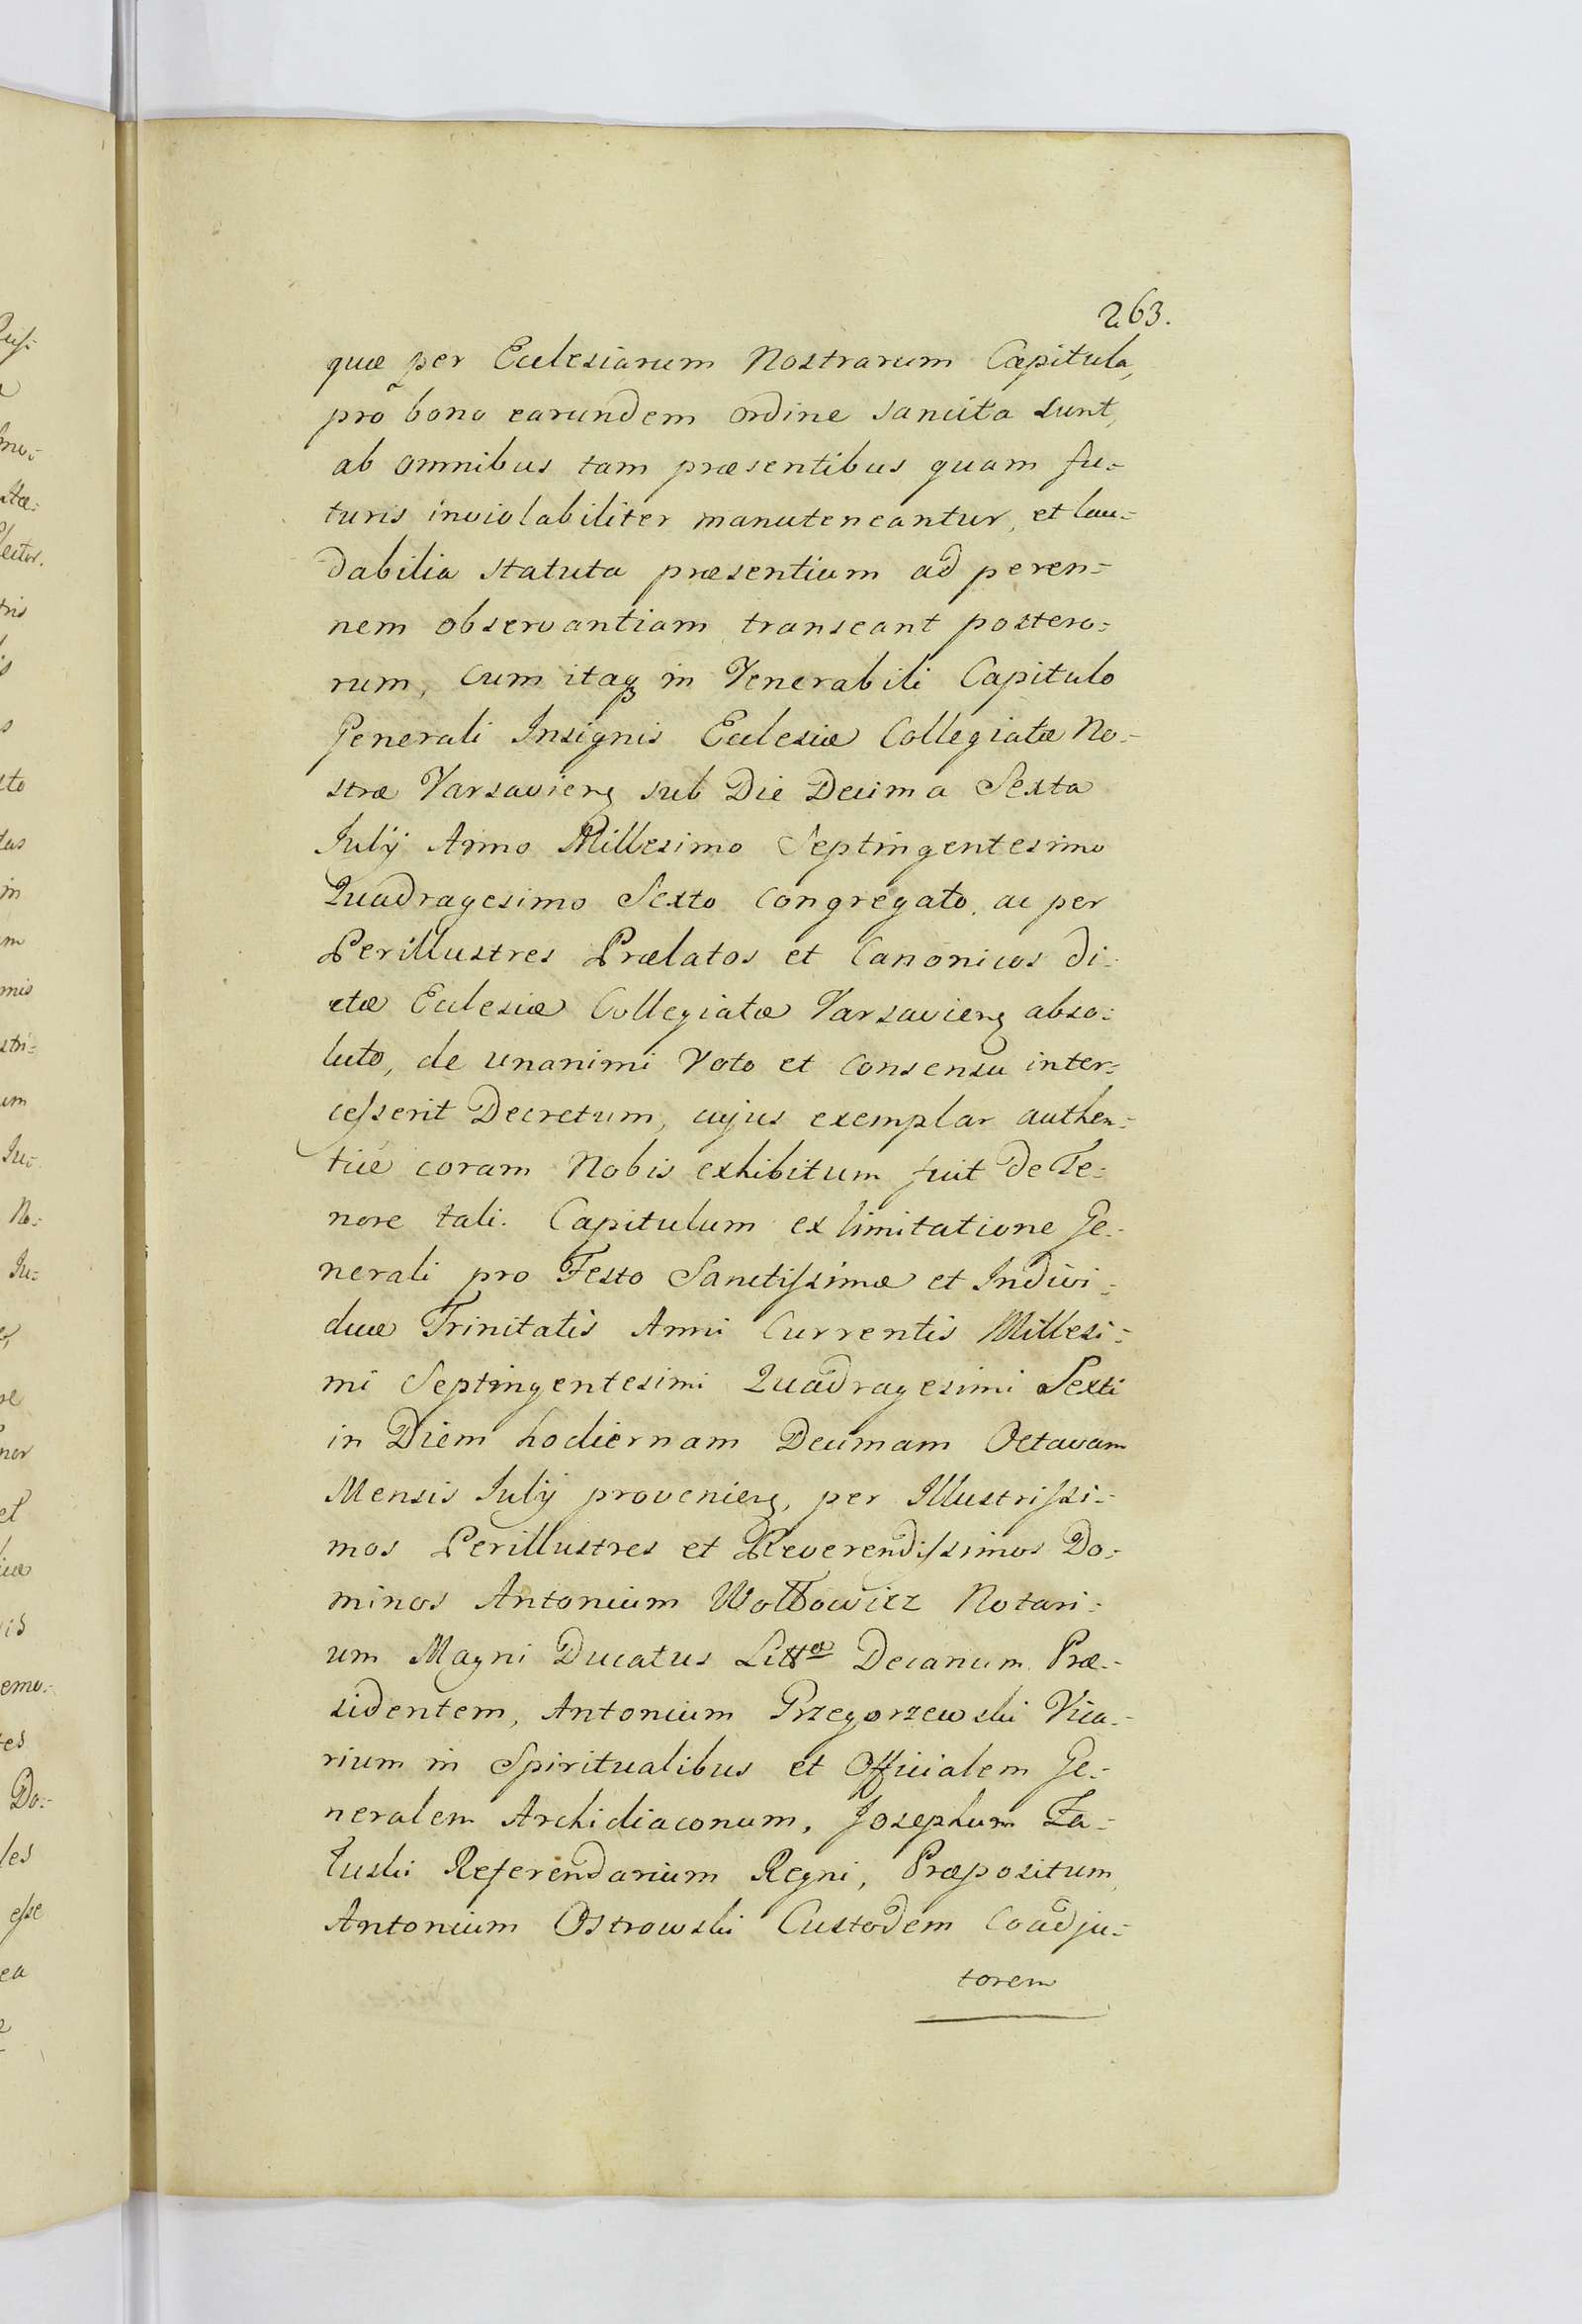 263.
quæ per Ecclesiarum Nostrarum Capitula,
pro bono earundem ordine sancita sunt,
ab omnibus tam præsentibus quam fu-
turis inviolabiliter manuteneantur, et lau-
dabilia statuta præsentium ad peren-
nem observantiam transeant postero-
rum, cum itaq in Venerabili Capitulo
Generali Insignis Ecclesiæ Collegiatæ No-
stræ Varsavieng sub Die Decima Sexta
Julij Anno Millesimo Septingentesimo
Quadragesimo Sexto congregato, ac per
Perillustres Prælatos et Canonicos di-
ctæ Ecclesiæ Collegiatæ Varsavieng abso-
luto, de unanimi Voto et consensu inter-
cesserit Decretum, cujus exemplar authen-
tice coram Nobis exhibitum fuit de Te-
nore tali. Capitulum ex limitatione Ge-
nerali pro Festo Sanctissimæ et Indivi-
duæ Trinitatis Anni Currentis Millesi-
mi Septingentesimi Quadragesimi Sexti
in Diem hodiernam Decimam Octavam
Mensis Julij provenieng, per Illustrissi-
mos Perillustres et Reverendissimos Do-
minos Antonium Wołłowicz Notari-
um Magni Ducatus Littæ Decanum Præ-
sidentem, Antonium Grzegorzewski Vica-
rium in Spiritualibus et Officialem Ge-
neralem Archidiaconum, Josephum Za-
łuski Referendarium Regni, Præpositum,
Antonium Ostrowski Custodem Coadju-
torem